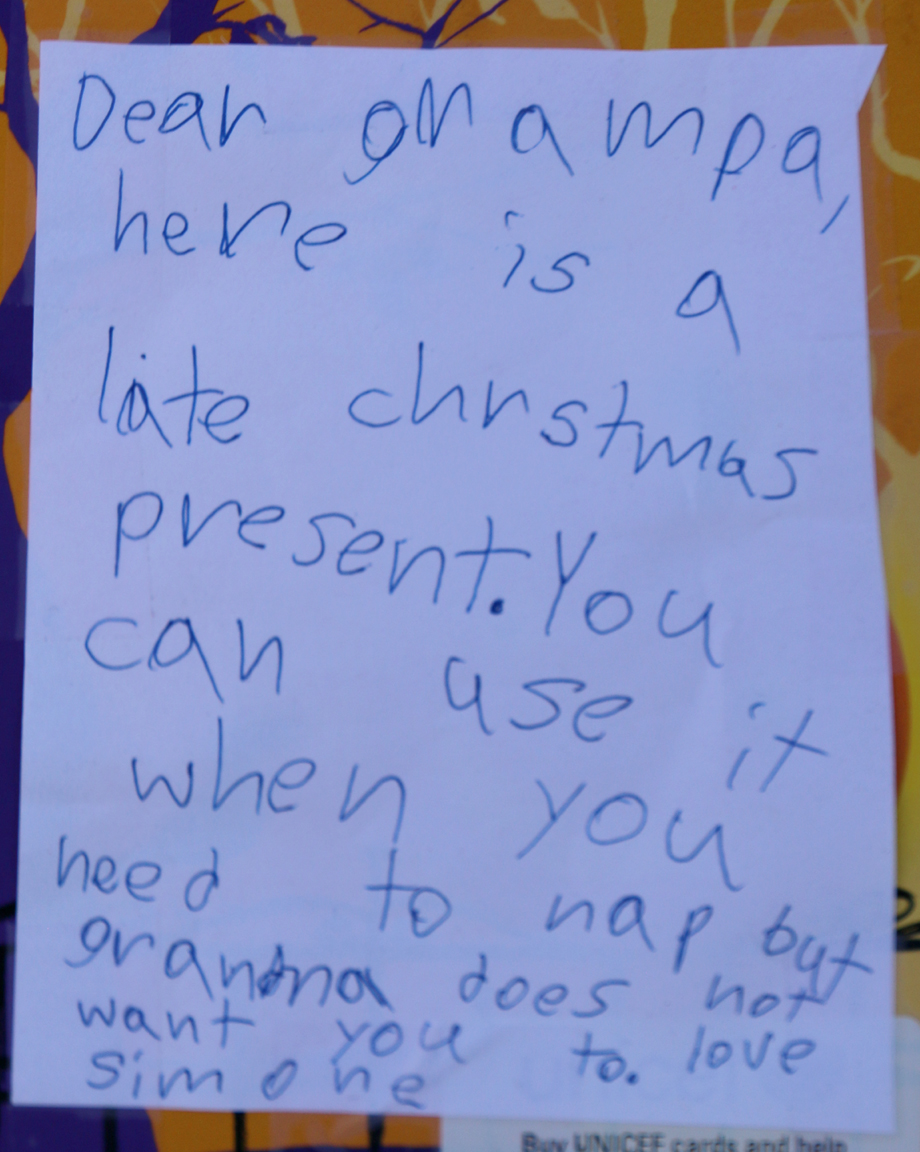 Dear grampa,
here is a
late chrstmas
present. You
can use it
when you
need to nap but
grandma does not
want you to. love
simone
Buy UNICEF cards and help